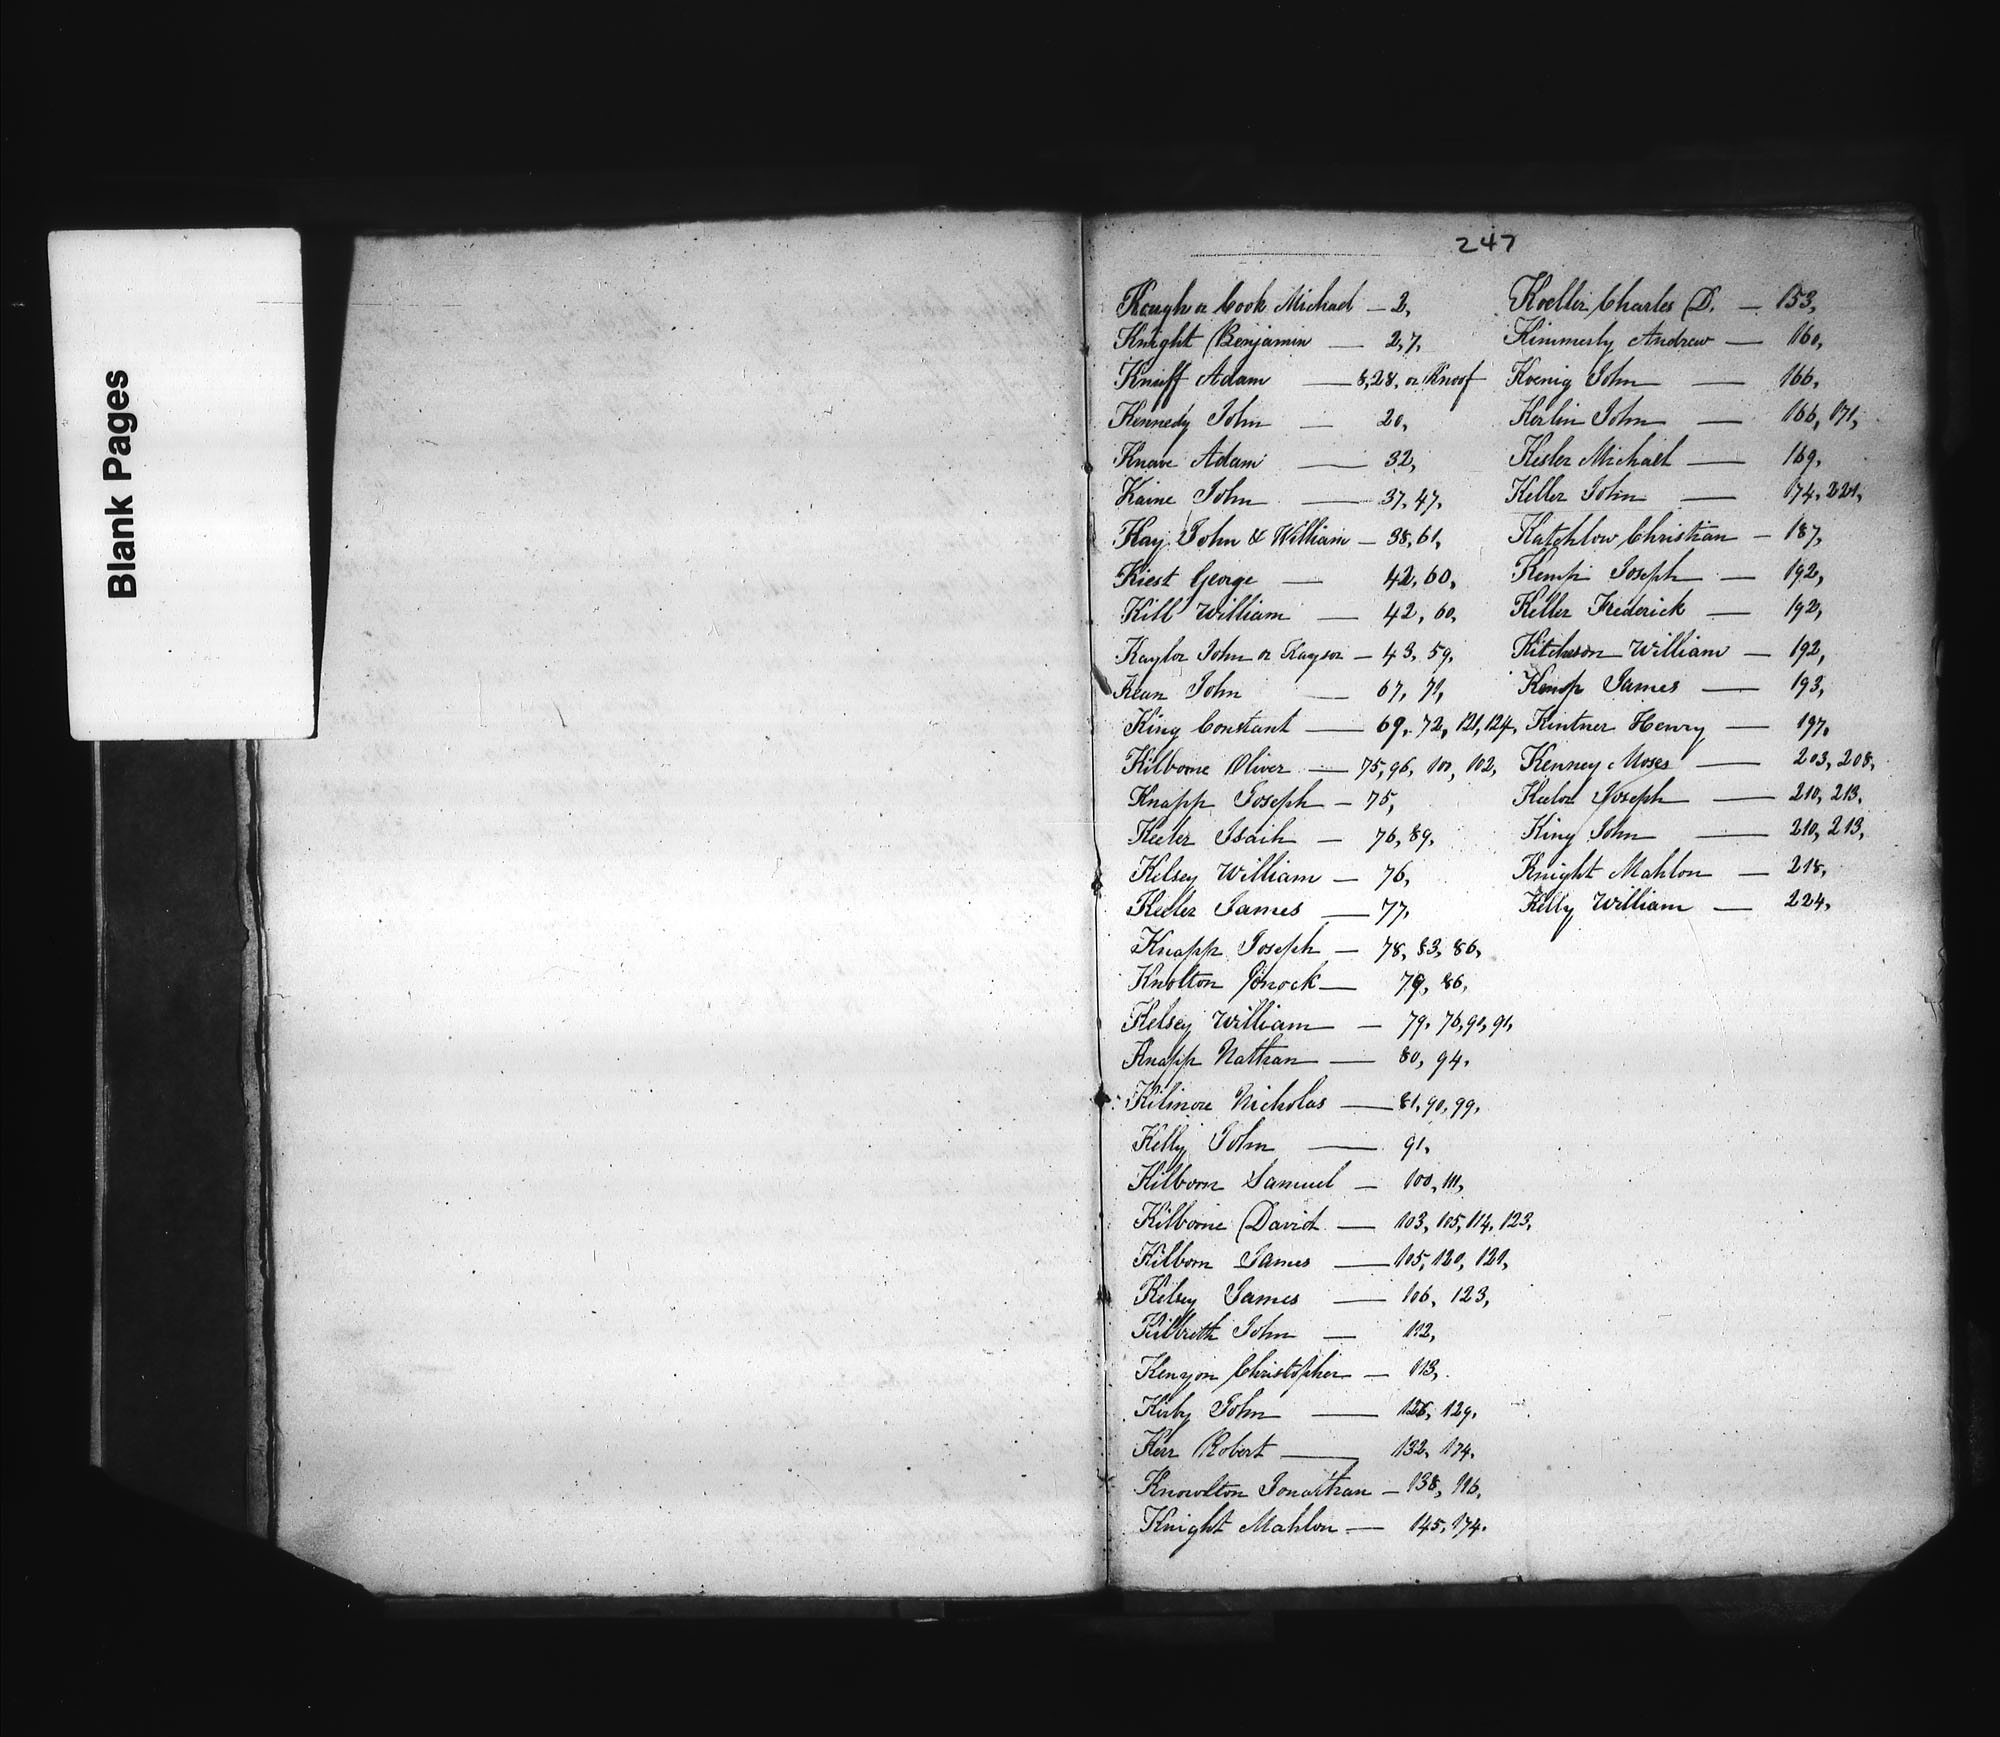 Blank Pages
247
Kough or Cook Michael — 2,
Knight Benjamin — 2, 7,
Knuff Adam — 8, 28, or Knoof
Kennedy John — 20,
Knave Adam — 32,
Kaine John — 37, 47,
Kay John & William — 38, 61,
Kiest George — 42, 60,
Kill William — 42, 60,
Kaylor John or Kaysor — 43, 59,
Kean John — 67, 71,
King Constant — 69, 72, 121, 124,
Kilborne Oliver — 75, 96, 101, 102,
Knapp Joseph — 75,
Keeler Isaih — 76, 89,
Kelsey William — 76,
Keeler James — 77,
Knapp Joseph — 78, 83, 86,
Knolton Enock — 79, 86,
Kelsey William — 79, 76, 90, 91,
Knapp Nathan — 80, 94,
Kilmore Nicholas — 81, 90, 99,
Kelly John — 91,
Kilborn Samuel — 100, 111,
Kilborne David — 103, 105, 114, 123,
Kilborn James — 105, 120, 121,
Kelsey James — 106, 123,
Kilbreth John — 112,
Kenyon Christopher — 113,
Kirby John — 126, 129,
Kerr Robert — 132, 174,
Knowlton Jonathan — 138, 116,
Knight Mahlon — 145, 174.
Koeller Charles D. — 153,
Kimmerly Andrew — 160,
Koenig John — 166,
Kerlin John — 166, 171,
Kesler Michael — 169,
Keller John — 174, 221,
Katchlow Christian — 187,
Kemp Joseph — 192,
Keller Frederick — 192,
Kitcheson William — 192,
Kemp James — 193,
Kintner Henry — 197,
Kenney Moses — 203, 208,
Keelor Joseph — 210, 213,
King John — 210, 213,
Knight Mahlon — 218,
Kelly William — 224,